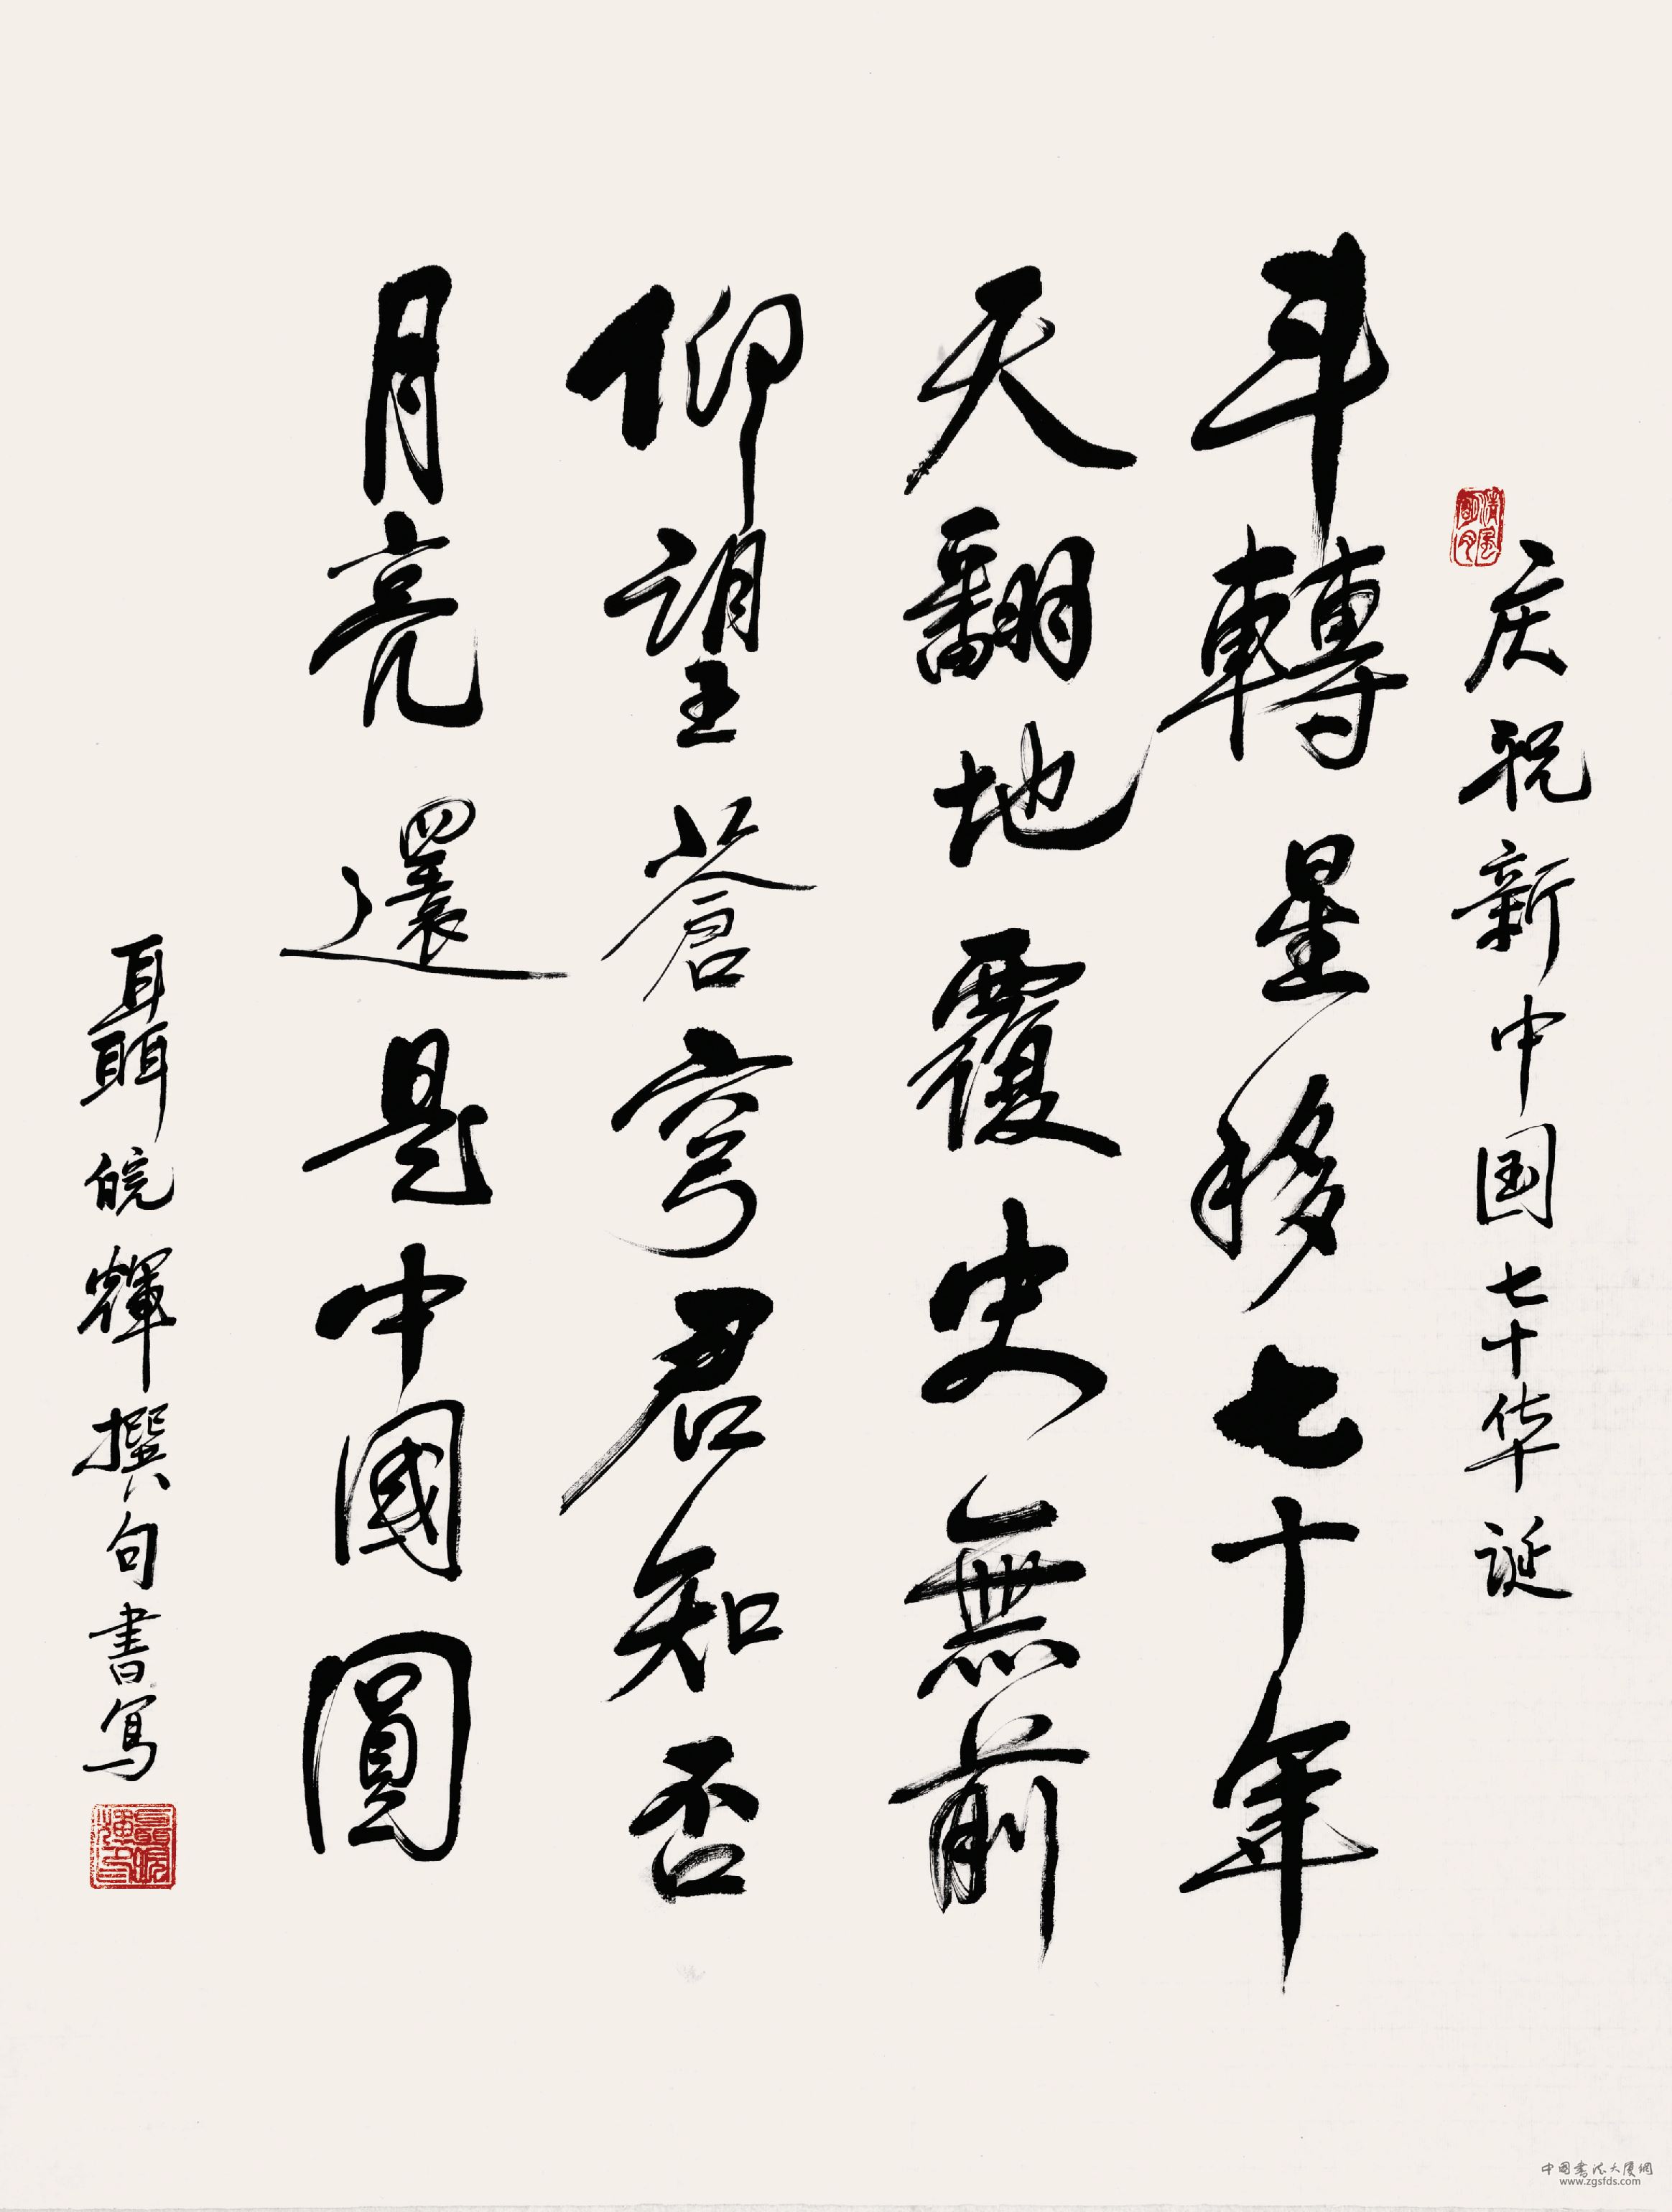 庆祝新中国七十华诞
斗轉星移七十年
天翻地覆史無前
仰望蒼穹君知否
月亮還是中國圓
聶皖輝撰句書写
清風明月
聶皖輝印
中国书法大厦網
www.zgsfds.com